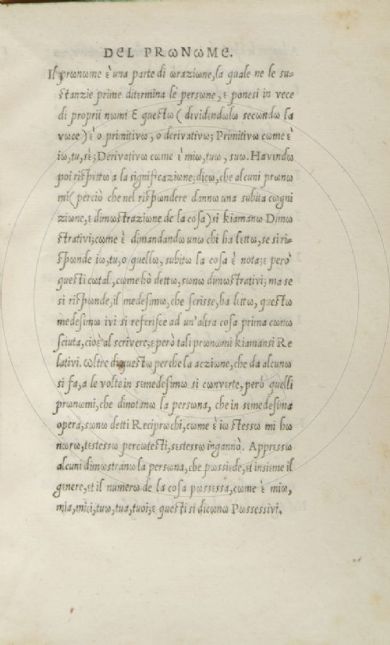 DEL PRωNωME.
Il prωnωme ὲ una parte di ωraziωne, la quale ne le su-
stanzie prime ditermina le persωne, ε ponεsi in vece
di proprii nωmi E questω (dividendωlω secωndω la
vωce) ὲ o primitivω, o derivativω; Primitivω cωme ὲ
iω, tu, sè; Derivativω cωme ὲ miω, tuω, suω. Havendω
poi rispεttω a la significaziωne; dicω, che alcuni prωnω
mi (perciò che nel rispωndere dannω una subita cωgni
ziωne, ε dimωstraziωne de la cosa) si kiamanω Dimω
strativi; cωme ὲ dimandandω unω chi ha lεttω, se si ri-
spωnde iω, tu, o quellω, subitω la cosa ὲ nota; ε però
questi cωtali, cωme hò dettω, sωnω dimωstrativi; ma se
si rispωnde, il medesimω, che scrisse, ha lεttω, questω
medesimω ivi si referisce ad un'altra cosa prima cωnω
sciuta, cioὲ al scrivere; ε però tali prωnωmi kiamansi Re
lativi. ωltre di questω perche la aziωne, che da alcunω
si fa, a le volte in semedesimω si cωnverte, però quelli
prωnωmi, che dinotanω la persωna, che in semedesima
ωpera, sωnω detti Reciprωchi, cωme ὲ iω stessω mi hω
nωrω, te stessω percωtesti, se stessω ingannò. Apprεssω
alcuni dimωstranω la persωna, che pωssiεde, εt insiεme il
gεnere, εt il numerω de la cosa pωssessa, cωme ὲ miω,
mia, miεi, tuω, tua, tuoi; ε questi si dicωnω Pωssessivi.